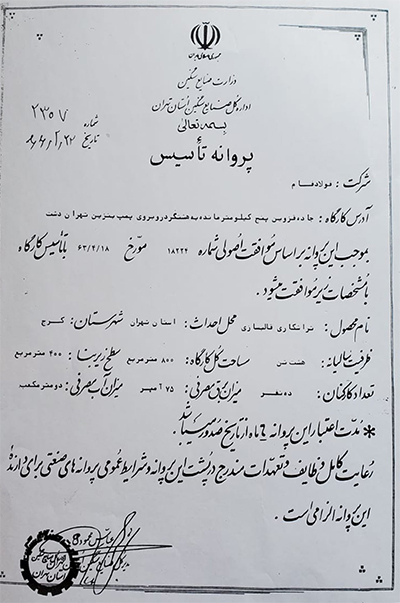 جمهوری اسلامی ایران
وزارت صنایع سنگین
اداره کل صنایع سنگین استان تهران
بسمه تعالی
شماره ۲۳۵۷
تاریخ
پروانه تأسیس
شرکت : فولادفام
آدرس کارگاه : جاده فردوس پنج کیلومتر مانده به هشتگرد روبروی پمپ بنزین تهران دشت
بموجب این پروانه براساس موافقت اصولی شماره ۱۸۲۲۴ مورخ ۶۳/۴/۱۸ با تأسیس کارگاه
با مشخصات زیر موافقت میشود .
نام محصول : تراشکاری قالبسازی محل احداث : استان تهران شهرستان : کرج
ظرفیت سالیانه : هشت تن مساحت کل کارگاه : ۸۰۰ مترمربع سطح زیربنا : ۴۰۰ مترمربع
تعداد کارکنان : ده نفر میزان برق مصرفی : ۷۵ آمپر میزان آب مصرفی : دو مترمکعب
* مدت اعتبار این پروانه ۶ ماه از تاریخ صدور میباشد
رعایت کامل وظایف و تعهدات مندرج در پشت این پروانه و شرایط عمومی پروانه های صنعتی برای دارندهٔ
این پروانه الزامی است .
مدیرکل صنایع سنگین استان تهران